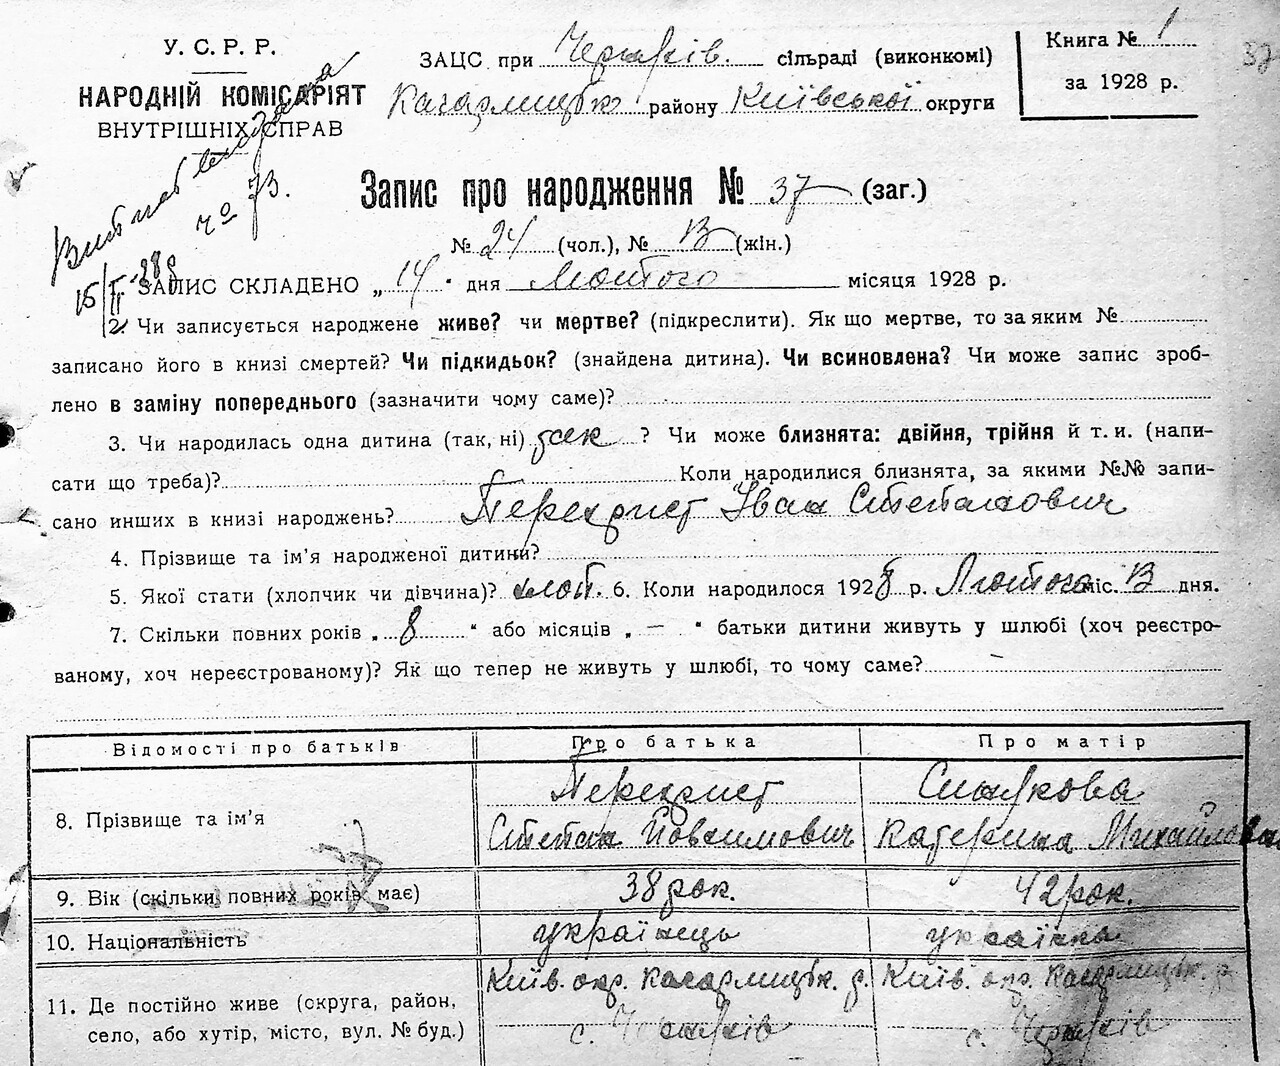 У. С. Р. Р.
НАРОДНІЙ КОМІСАРІЯТ
ВНУТРІШНІХ СПРАВ
ЗАЦС при Черняхів. сільраді (виконкомі)
Кагарлицьк. району Київської округи
Книга № 1
за 1928 р.
37
Запис про народження № 37 (заг.)
№ 24 (чол.), № 13 (жін.)
№ 73.
15/II-28
1. ЗАПИС СКЛАДЕНО „ 14 " дня Лютого місяця 1928 р.
2. Чи записується народжене живе? чи мертве? (підкреслити). Як що мертве, то за яким №
записано його в книзі смертей? Чи підкидьок? (знайдена дитина). Чи всиновлена? Чи може запис зроб-
лено в заміну попереднього (зазначити чому саме)?
3. Чи народилась одна дитина (так, ні) так ? Чи може близнята: двійня, трійня й т. и. (напи-
сати що треба)? Коли народилися близнята, за якими №№ запи-
сано инших в книзі народжень? Перехрист Іван Степанович
4. Прізвище та ім'я народженої дитини?
5. Якої стати (хлопчик чи дівчина)? хлоп. 6. Коли народилося 1928 р. Лютого міс. 13 дня.
7. Скільки повних років „ 8 " або місяців „ — " батьки дитини живуть у шлюбі (хоч реєстро-
ваному, хоч нереєстрованому)? Як що тепер не живуть у шлюбі, то чому саме? —
Відомості про батьків Про батька Про матір
8. Прізвище та ім'я
Перехрист
Степан Йовхимович
Катерина Михайловна
9. Вік (скільки повних років має) 38 рок. 42 рок.
10. Національність українець українка
11. Де постійно живе (округа, район,
село, або хутір, місто, вул. № буд.)
Київ. окр. Кагарлицьк. р.
с. Черняхів
Київ. окр. Кагарлицьк. р.
с. Черняхів